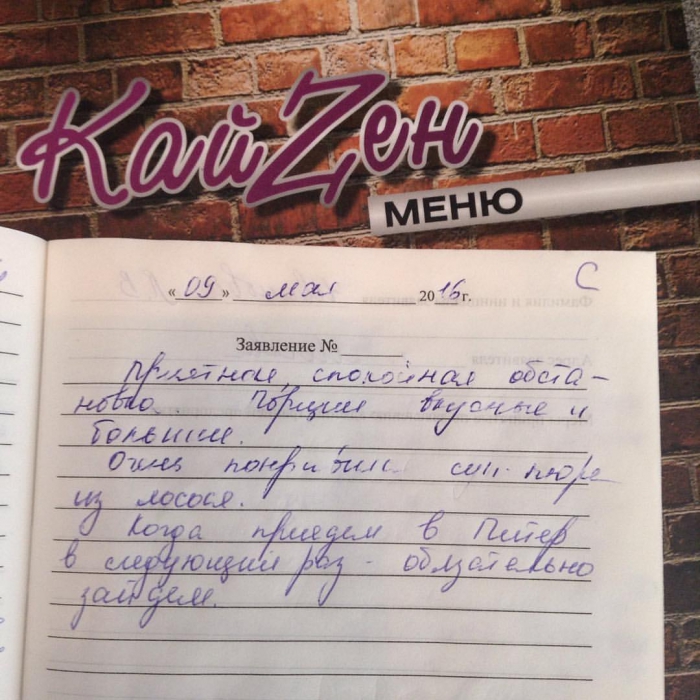 КайZен
МЕНЮ
С
«09» мая 2016г.
Заявление №
Приятная, спокойная обста-
новка. Порции вкусные и
большие.
Очень понравился суп-пюре
из лосося.
Когда приедем в Питер
в следующий раз - обязательно
зайдем.